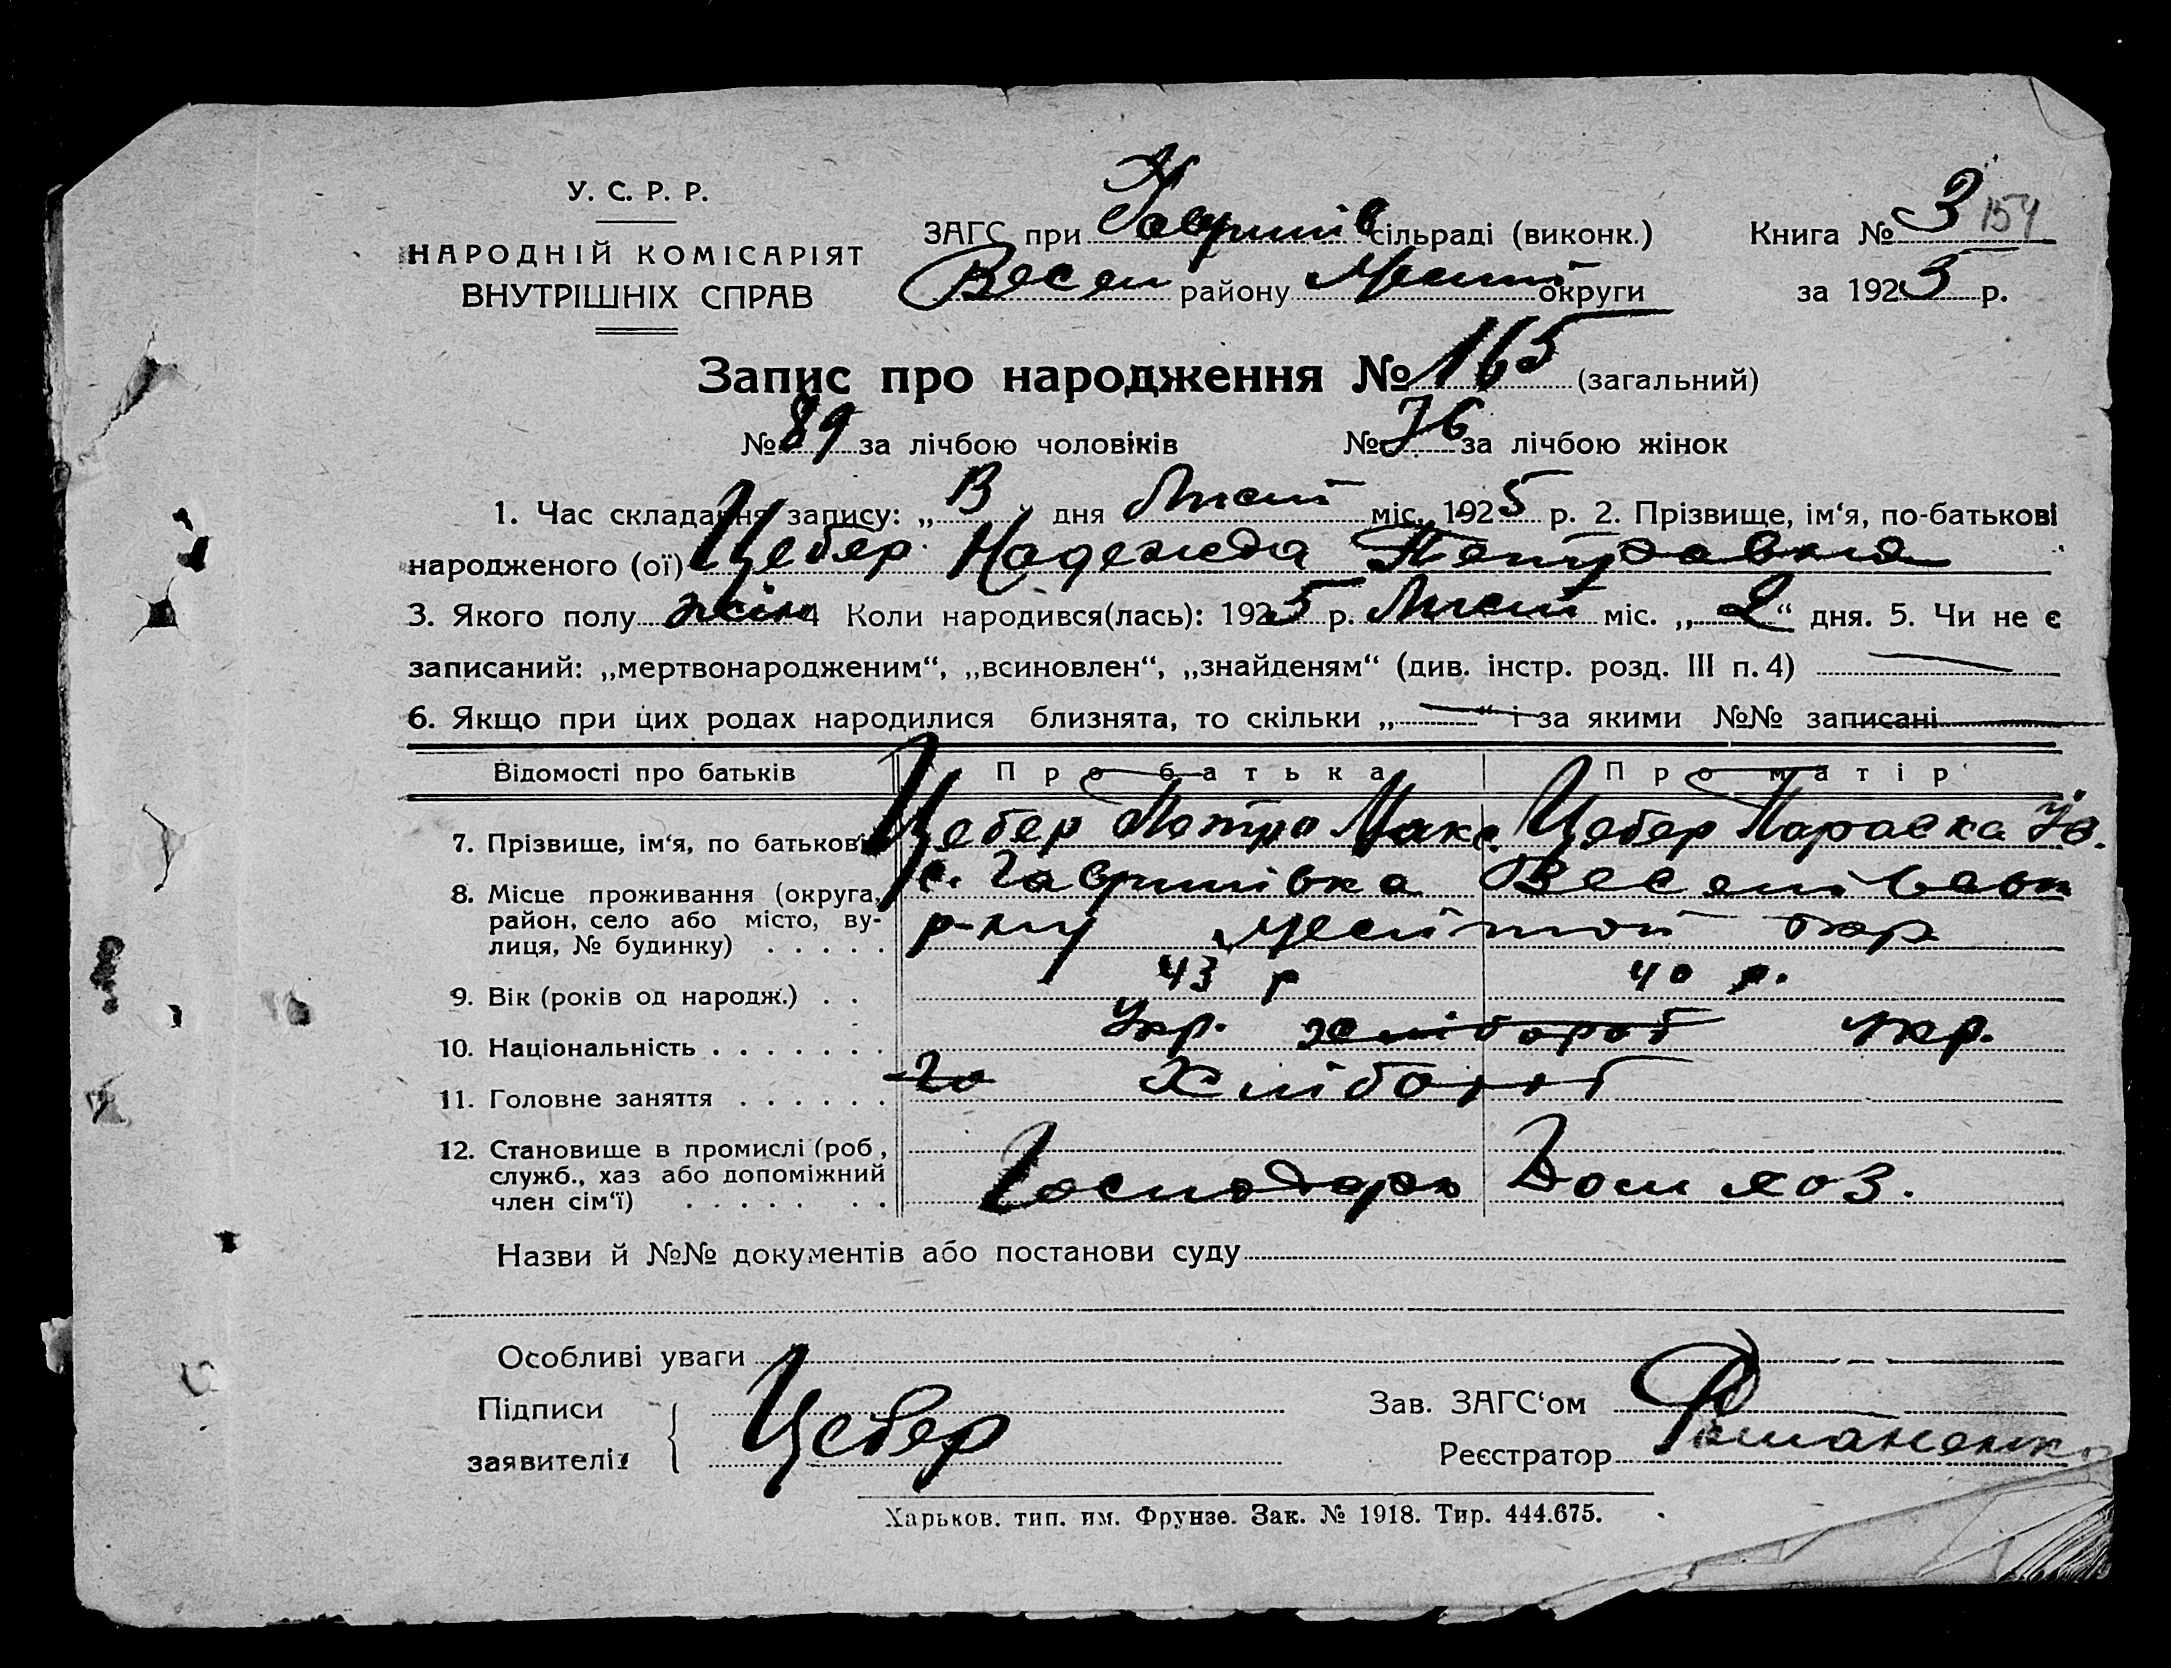 У. С. Р. Р.
НАРОДНІЙ КОМІСАРІЯТ
ВНУТРІШНІХ СПРАВ
ЗАГС при Гавришів сільраді (виконк.)
Весел району округи
Книга № 3 154
за 1925 р.
Запис про народження № 165 (загальний)
№ 89 за лічбою чоловіків № 76 за лічбою жінок
1. Час складання запису: „ дня міс. 1925 р. 2. Прізвище, ім‘я, по-батькові
народженого (ої) Цебер Надежда Петровна
3. Якого полу жін 4 Коли народився(лась): 1925 р. міс. „2“ дня. 5. Чи не є
записаний: „мертвонародженим“, „всиновлен“, „знайденям“ (див. інстр. розд. III п. 4) —
6. Якщо при цих родах народилися близнята, то скільки „—“ і за якими №№ записані —
Відомості про батьків Про батька Про матір
7. Прізвище, ім‘я, по батькові Цебер Петро Макс. Цебер Параска
8. Місце проживання (округа, с. Гавришівка
район, село або місто, ву- р-ну окр
лиця, № будинку) . . . . .
9. Вік (років од народж.) . . 43 р 40 р.
10. Національність . . . . . . . Укр. хлібороб Укр.
11. Головне заняття . . . . . . Хлібороб
12. Становище в промислі (роб.,
служб., хаз або допоміжний Господарь Дом хоз.
член сім‘ї) . . . . . . .
Назви й №№ документів або постанови суду
Особливі уваги
Підписи
заявителів Цебер
Зав. ЗАГС‘ом
Реєстратор Романенко
Харьков. тип. им. Фрунзе. Зак. № 1918. Тир. 444.675.